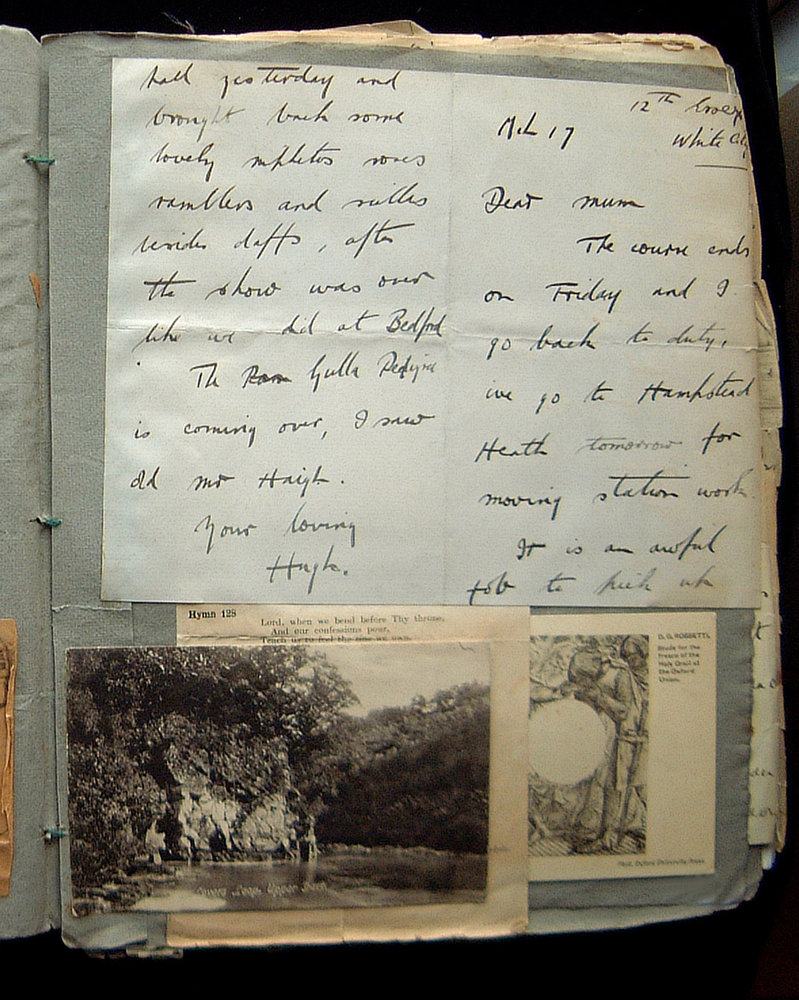 hall yesterday and
brought back some
lovely roses
ramblers and
besides daffs, after
the show was over
like we did at Bedford
The Gulla
is coming over, I saw
old mr Haigh.
Your loving
Hugh.
12th
Mch 17
White City
Dear mum
The course ends
on Friday and I
go back to duty,
ive go to Hampstead
Heath tomorrow for
moving station work.
It is an awful
job to pick up
Hymn 128
Lord, when we bend before Thy throne,
And our confessions pour,
Teach us to feel the sins we own,
Lovers Leap, Upper
D. G. ROSSETTI,
Study for the
fresco of the
Holy Grail at
the Oxford
Union.
Oxford University Press